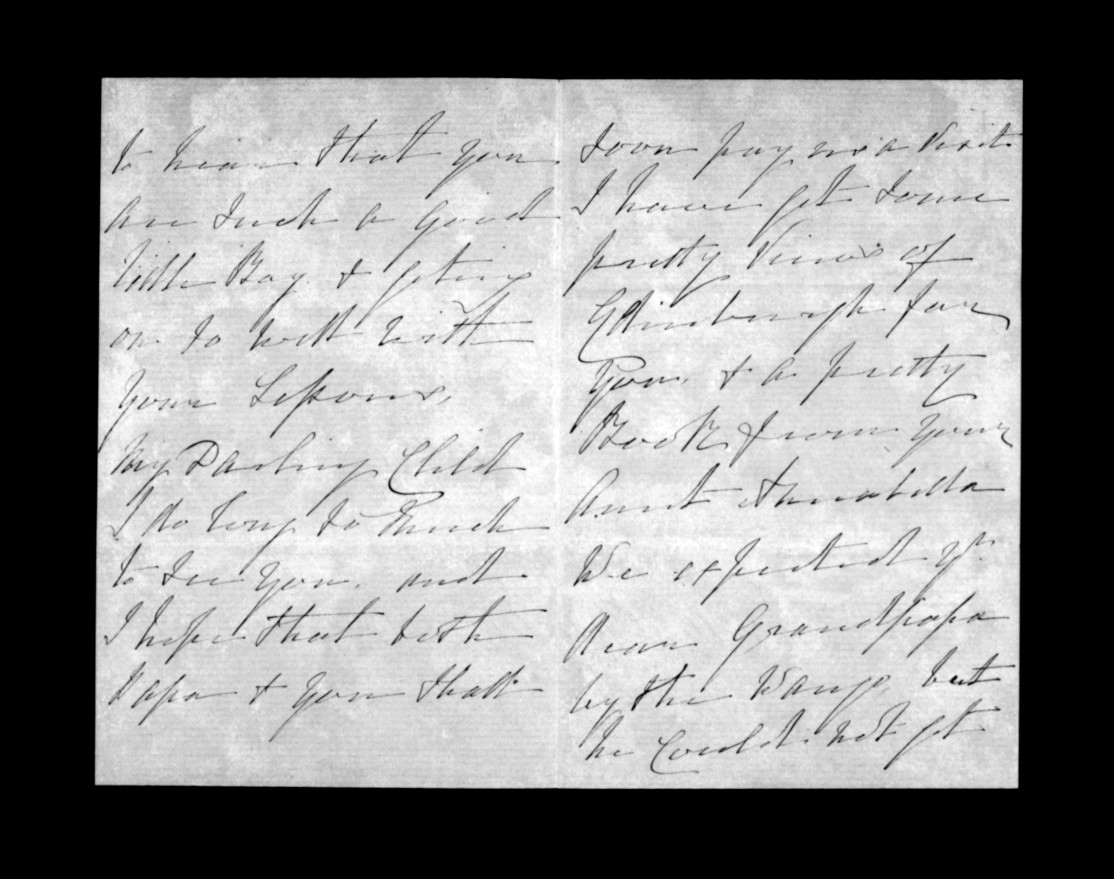 to hear that you
are such a good
little Boy & geting
on so well with
your Lessons.
My Darling Child
I do long so much
to see you, and
I hope that both
Papa & you shall
soon pay us a visit
I have got some
pretty Views of
Edinburgh for
you, & a pretty
Book from your
Aunt Annabella
We expected yr
dear Grandpapa
by the Wanga, but
he could not get